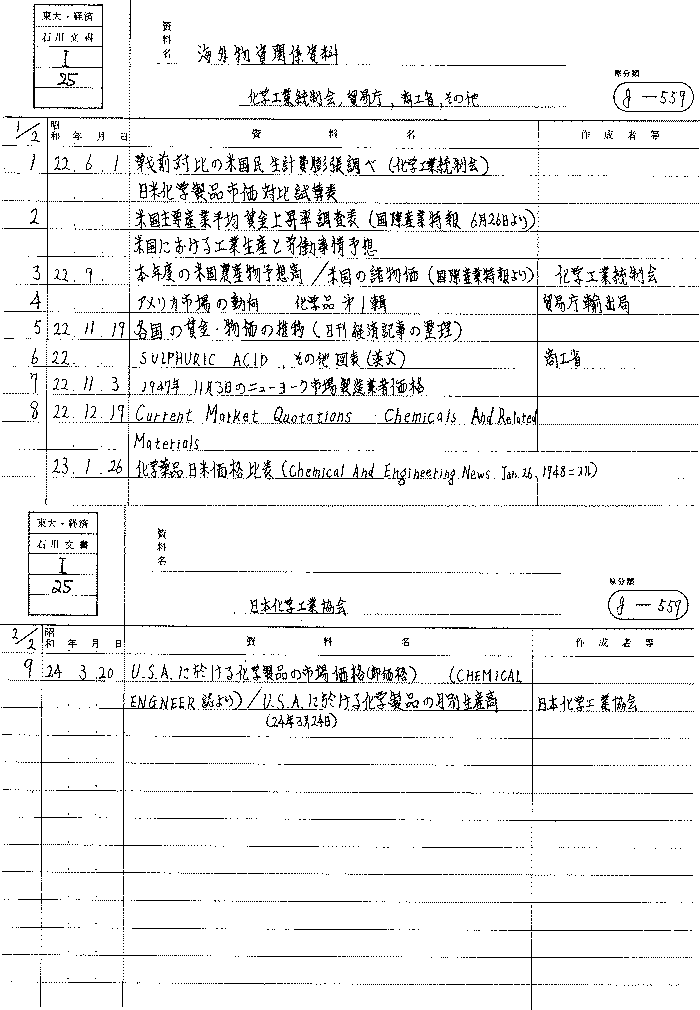 東大・経済
石川文書
I
25
資料名
海外物資関係資料
化学工業統制会,貿易庁,商工省,その他
原分類
g-559
1/2 昭和 年 月 日 資料名 作成者等
1 22.6.1 戦前対比の米国民生計費膨張調べ(化学工業統制会)
日米化学製品市価対比試算表
2 米国主要産業平均賃金上昇率調査表(国際産業特報 6月26日より)
米国における工業生産と労働事情予想
3 22.9. 本年度の米国農産物予想高/米国の諸物価(国際産業特報より) 化学工業統制会
4 アメリカ市場の動向 化学品 第1輯 貿易庁輸出局
5 22.11.19 各国の賃金・物価の推移(日刊経済記事の整理)
6 22. SULPHURIC ACID その他図表(英文) 商工省
7 22.11.3 1947年11月3日のニューヨーク市場製造業者価格
8 22.12.19 Current Market Quotations Chemicals And Related
Materials
23.1.26 化学薬品日米価格比表(Chemical And Engineering News. Jan. 26, 1948ニヨル)
東大・経済
石川文書
I
25
資料名
日本化学工業協会
原分類
g-559
2/2 昭和 年 月 日 資料名 作成者等
9 24.3.20 U.S.A.に於ける化学製品の市場価格(卸価格) (CHEMICAL
ENGINEER誌より)/U.S.A.に於ける化学製品の月別生産高 日本化学工業協会
(24年3月24日)